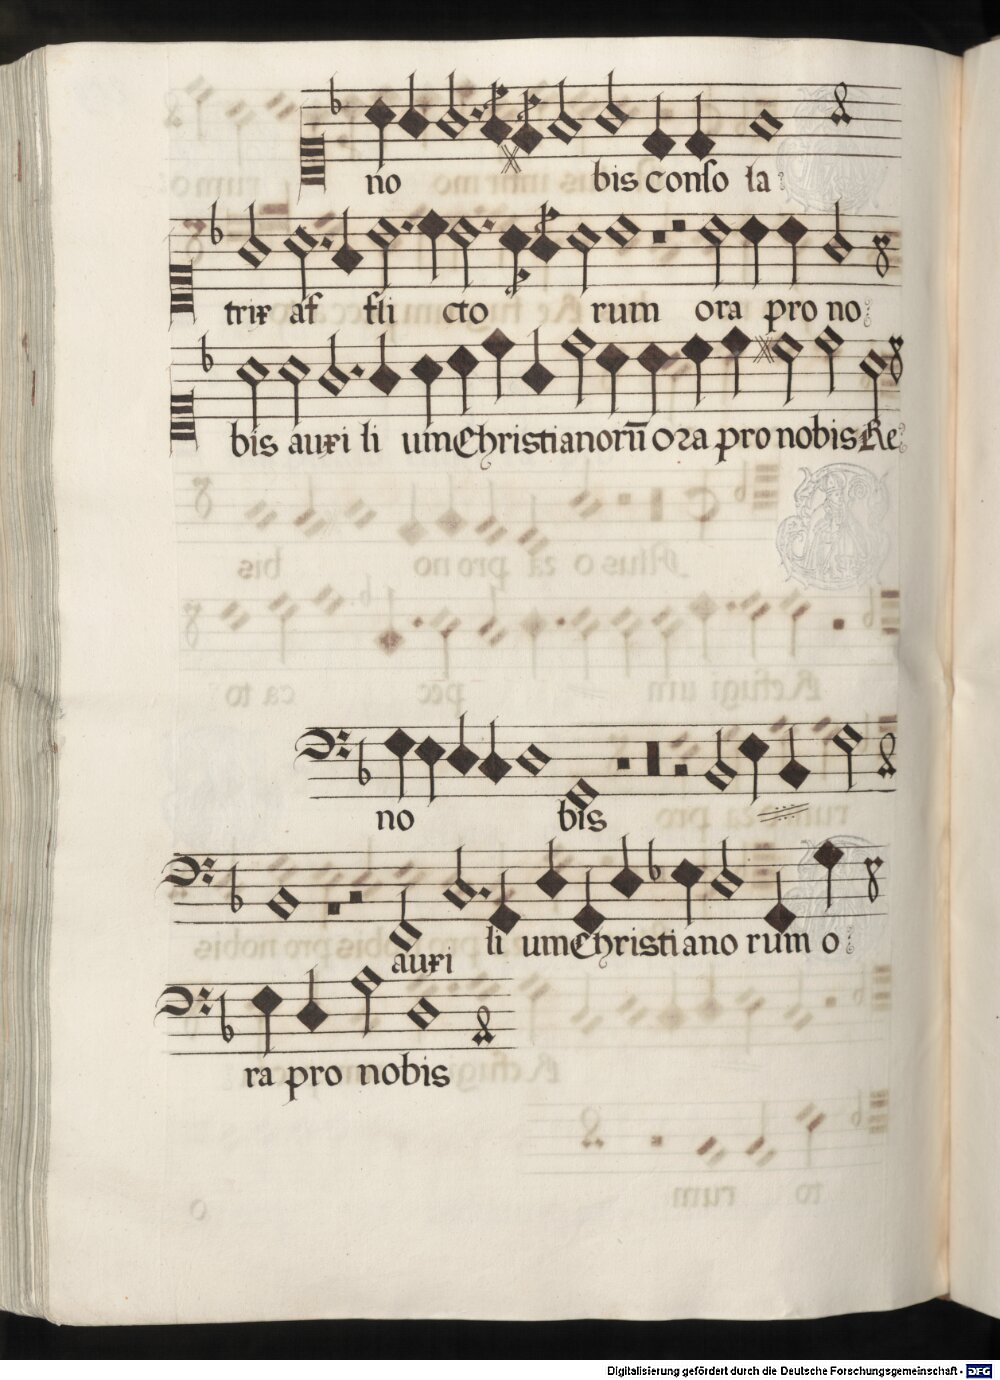 no bis conſo la:
trix af fli cto rum ora pro no:
bis auxi li um Christianorū ora pro nobis Re:
no bis
auxi li um Christiano rum o:
ra pro nobis
Digitalisierung gefördert durch die Deutsche Forschungsgemeinschaft - DFG